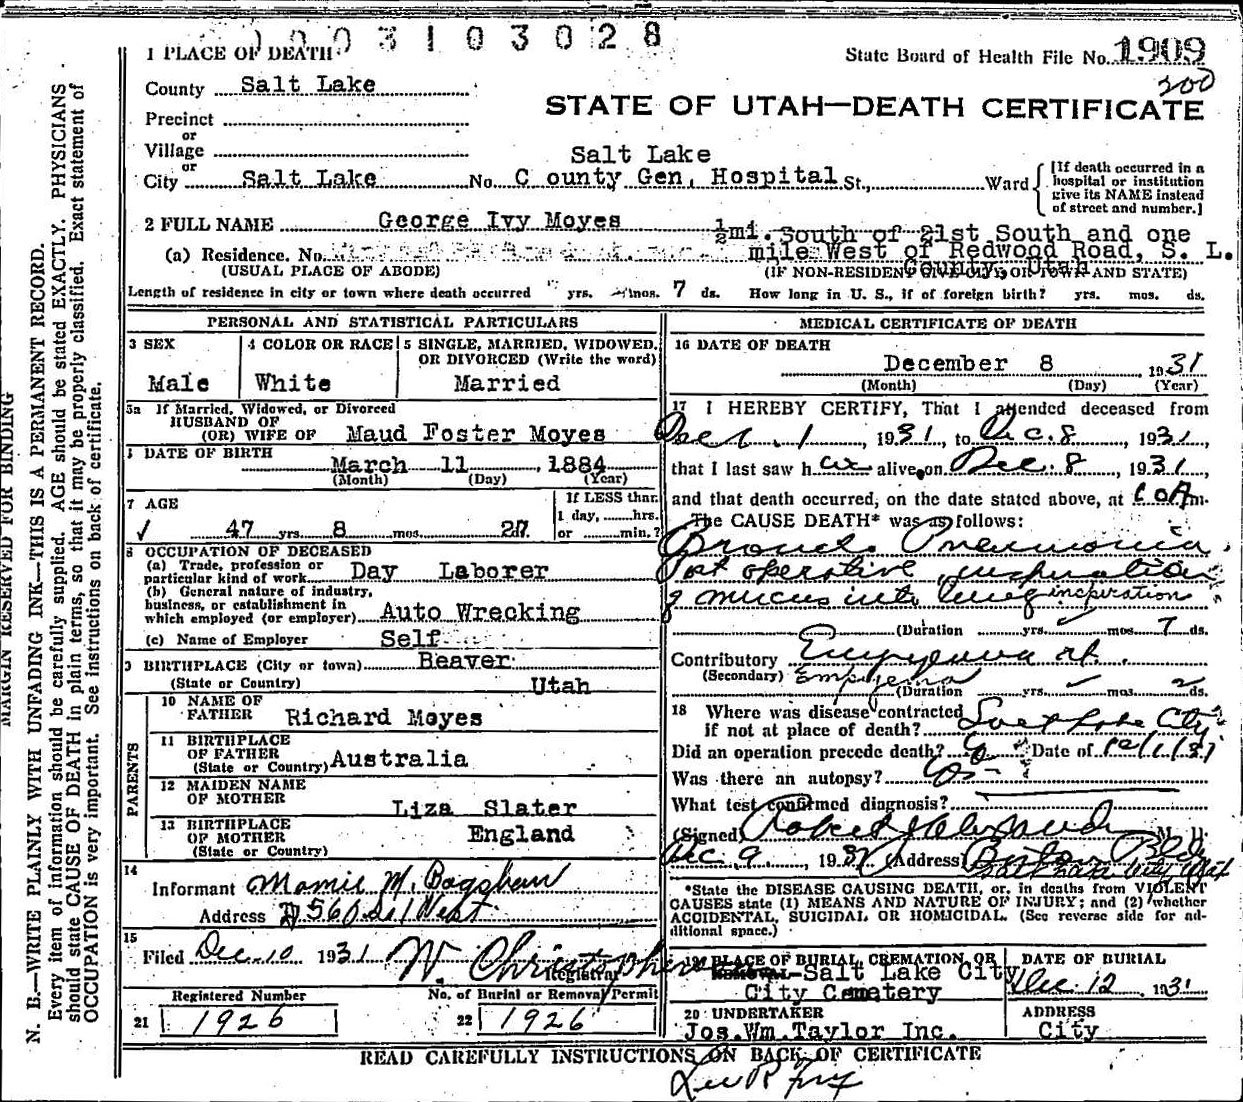 0003103028
1 PLACE OF DEATH
State Board of Health File No. 1909
200
County Salt Lake
STATE OF UTAH—DEATH CERTIFICATE
Precinct
or
Village
or
Salt Lake
City Salt Lake No. C ounty Gen. Hospital St., Ward
[If death occurred in a hospital or institution give its NAME instead of street and number.]
2 FULL NAME George Ivy Moyes
(a) Residence. No. ½mi. South of 21st South and one
mile West of Redwood Road, S. L.
County, Utah
(USUAL PLACE OF ABODE) (IF NON-RESIDENT GIVE CITY OR TOWN AND STATE)
Length of residence in city or town where death occurred yrs. mos. 7 ds. How long in U. S., if of foreign birth? yrs. mos. ds.
PERSONAL AND STATISTICAL PARTICULARS
3 SEX
Male
4 COLOR OR RACE
White
5 SINGLE, MARRIED, WIDOWED, OR DIVORCED (Write the word)
Married
5a If Married, Widowed, or Divorced
HUSBAND OF
(OR) WIFE OF Maud Foster Moyes
DATE OF BIRTH
March 11, 1884
(Month) (Day) (Year)
7 AGE
47 yrs. 8 mos. 27
If LESS than
1 day, hrs.
or min.?
8 OCCUPATION OF DECEASED
(a) Trade, profession or
particular kind of work Day Laborer
(b) General nature of industry,
business, or establishment in
which employed (or employer) Auto Wrecking
(c) Name of Employer Self
9 BIRTHPLACE (City or town) Beaver
(State or Country) Utah
PARENTS
10 NAME OF
FATHER Richard Moyes
11 BIRTHPLACE
OF FATHER
(State or Country) Australia
12 MAIDEN NAME
OF MOTHER
Liza Slater
13 BIRTHPLACE
OF MOTHER England
(State or Country)
14
Informant Mamie M. Bagshaw
Address 560 So 1 West
15
Filed Dec. 10 1931 W. Christopherson
Registrar
Registered Number
21 1926
No. of Burial or Removal Permit
22 1926
MEDICAL CERTIFICATE OF DEATH
16 DATE OF DEATH
December 8 1931
(Month) (Day) (Year)
17 I HEREBY CERTIFY, That I attended deceased from
Dec. 1, 1931, to Dec. 8, 1931,
that I last saw h alive on Dec. 8, 1931,
and that death occurred, on the date stated above, at m.
The CAUSE DEATH* was as follows:
Broncho Pneumonia.
Post operative, inspiration
of mucus into lung inspiration
(Duration yrs. mos. 7 ds.
Contributory Empyema rt.
(Secondary) Empyema
(Duration yrs. mos. 2 ds.
18 Where was disease contracted
if not at place of death? Salt Lake City
Did an operation precede death? Date of 12/1/31
Was there an autopsy?
What test confirmed diagnosis?
(Signed) Robert Alexander M. D.
Dec 9, 1931 (Address) Boston Bldg
Salt Lake City Utah
*State the DISEASE CAUSING DEATH, or, in deaths from VIOLENT
CAUSES state (1) MEANS AND NATURE OF INJURY; and (2) whether
ACCIDENTAL, SUICIDAL OR HOMICIDAL. (See reverse side for ad-
ditional space.)
19 PLACE OF BURIAL, CREMATION, OR
REMOVAL Salt Lake City
City Cemetery
DATE OF BURIAL
Dec. 12, 1931
20 UNDERTAKER
Jos. Wm. Taylor Inc.
ADDRESS
City
READ CAREFULLY INSTRUCTIONS ON BACK OF CERTIFICATE
MARGIN RESERVED FOR BINDING
N. B.—WRITE PLAINLY WITH UNFADING INK—THIS IS A PERMANENT RECORD.
Every item of information should be carefully supplied. AGE should be stated EXACTLY. PHYSICIANS
should state CAUSE OF DEATH in plain terms, so that it may be properly classified. Exact statement of
OCCUPATION is very important. See instructions on back of certificate.